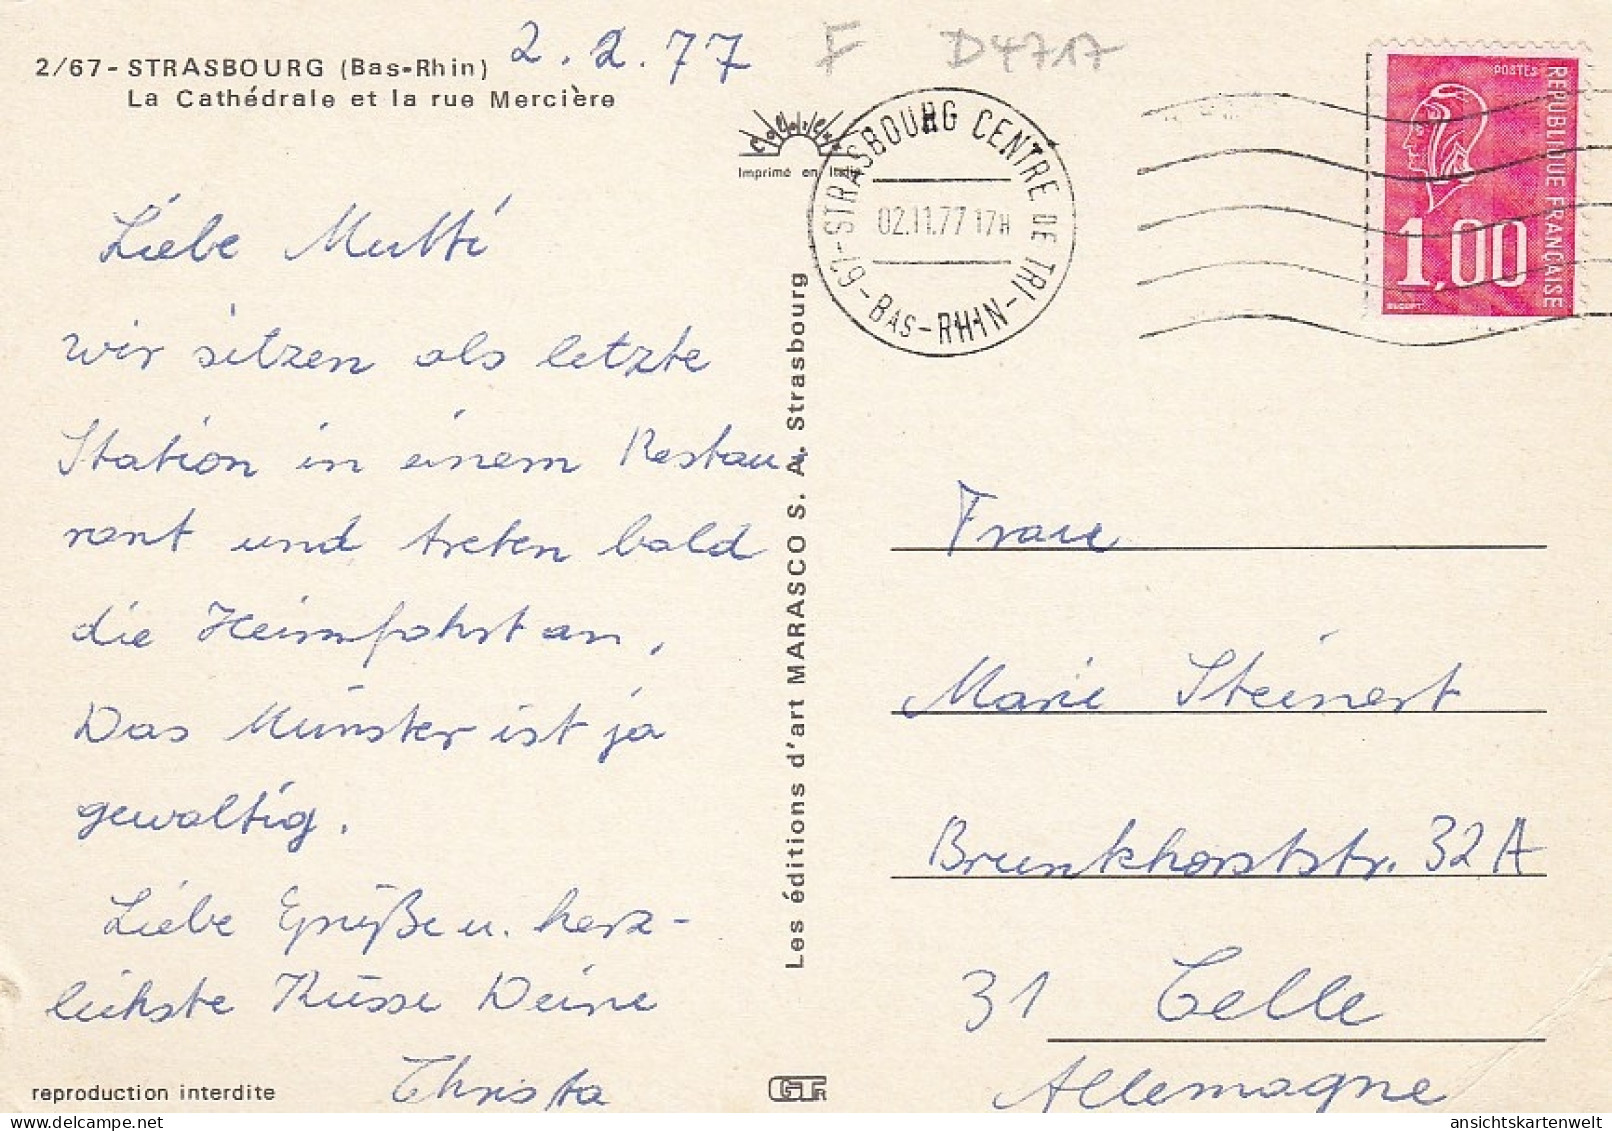 2/67-STRASBOURG (Bas-Rhin)
La Cathédrale et la rue Mercière
2.2.77
F D4717
Imprimé en Italie
STRASBOURG CENTRE DE TRI
67 - BAS-RHIN -
02.11.77 17H
POSTES
REPUBLIQUE FRANÇAISE
1,00
Liebe Mutti
wir sitzen als letzte
Station in einem Restau
rant und treten bald
die Heimfahrt an.
Das Münster ist ja
gewaltig.
Liebe Grüße u. herz-
lichste Küsse Deine
Christa
reproduction interdite
Les éditions d'art MARASCO S. A. Strasbourg
Frau
Marie Steinert
Brunkhorststr. 32A
31 Celle
Allemagne
ansichtskartenwelt